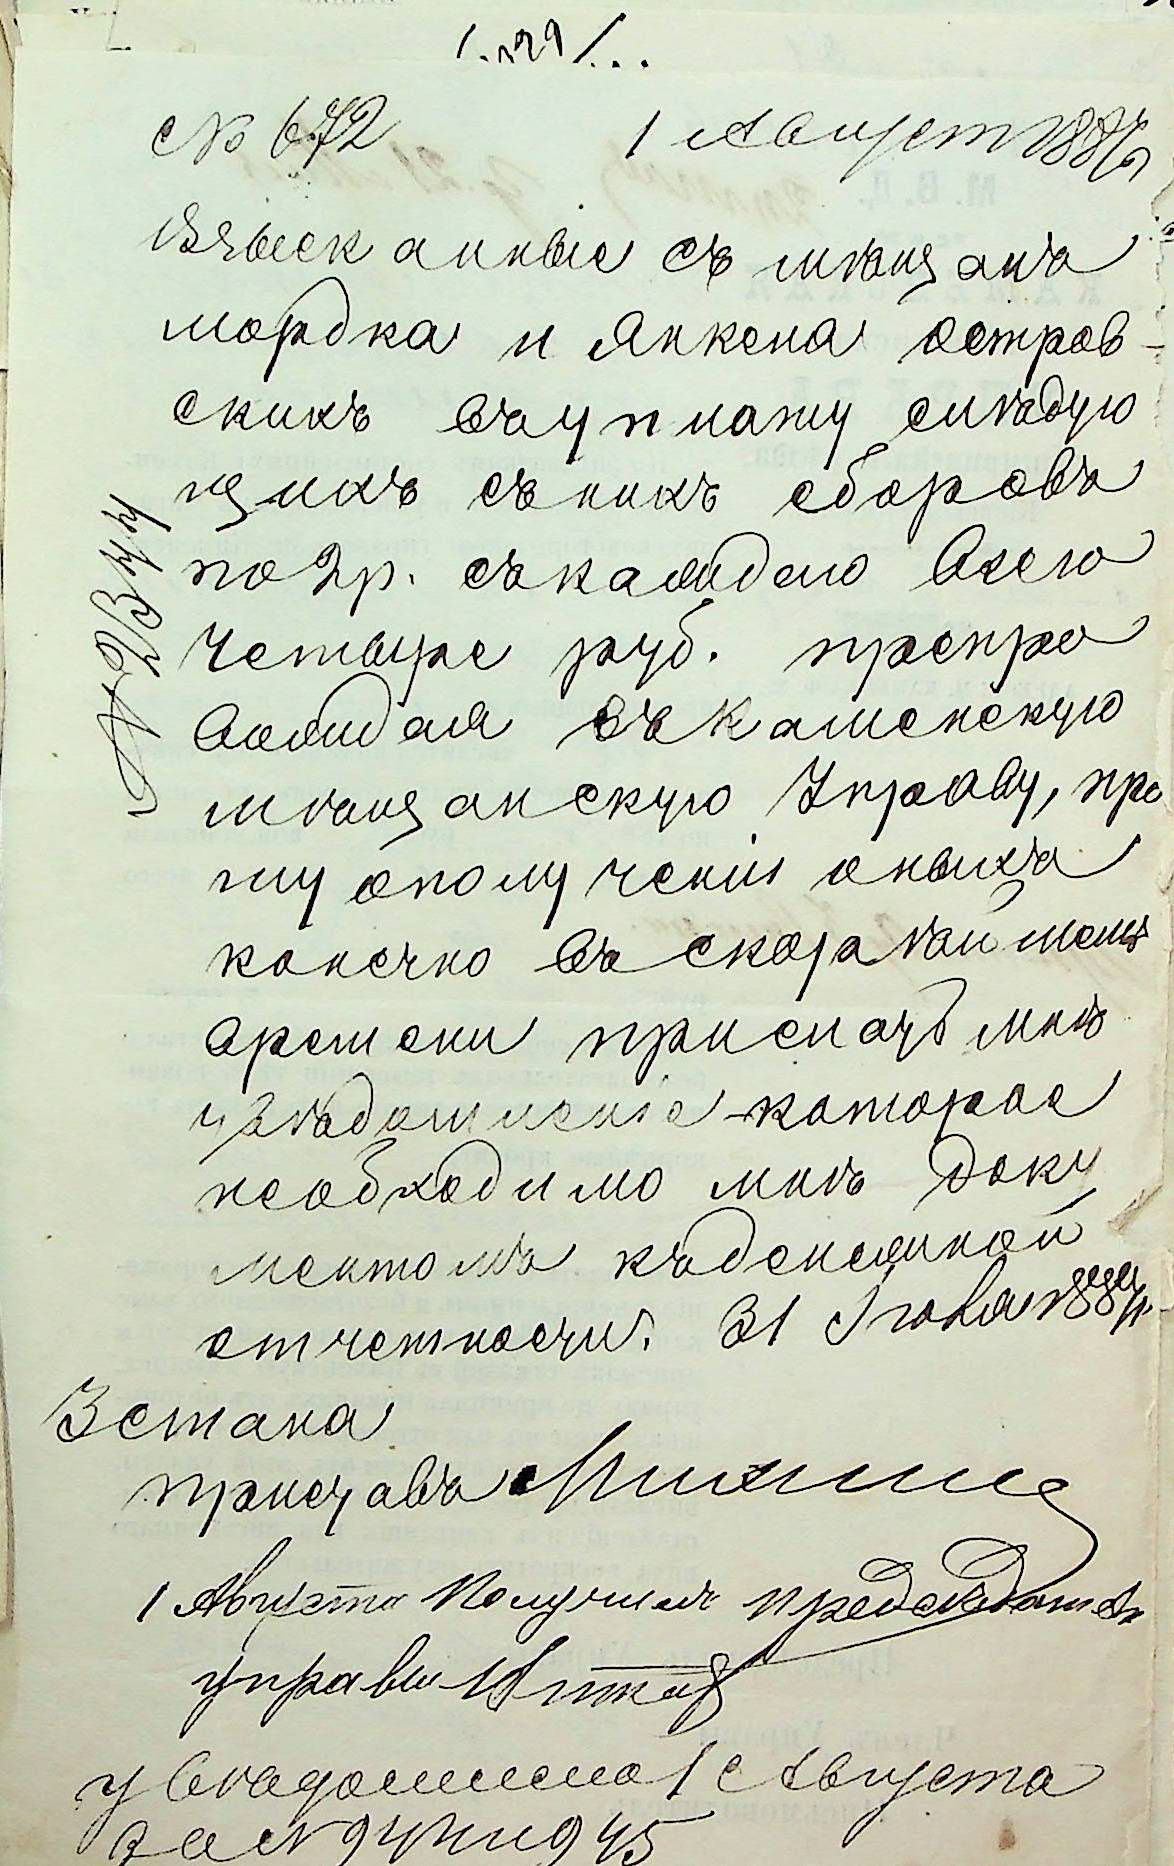 № 672 1 Август 1886
Взысканные съ мѣщанъ
мордка и Янкеля остров-
скихъ въ уплату слѣдую
щихъ съ нихъ сборовъ
по 2 р. съ каждаго всего
четыре руб. препро
вождая въ Каменскую
мѣщанскую Управу, про
шу ополучении оныхъ
конечно въ скорѣйшемъ
времени прислать мнѣ
увѣдомленіе которое
необходимо мнѣ доку
ментомъ къ денежной
отчетности. 31 Іюля
3 стана
приставъ
1 Августа Получилъ председатель
управы
увѣдомлено 1 Августа
за № 944 и 945